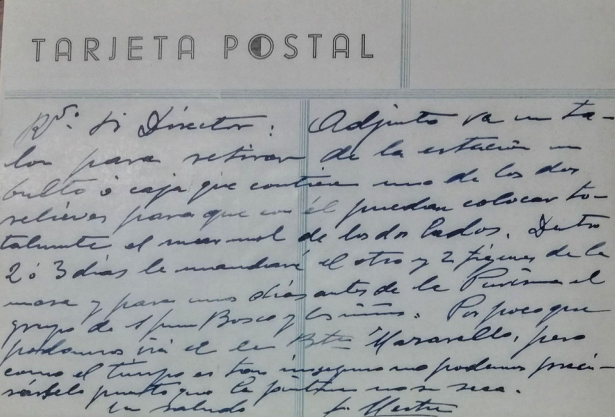 TARJETA POSTAL
Rvdo. Sr. Director: Adjunto va un ta-
lon para retirar de la estación un
bulto ó caja que contiene uno de los dos
relieves para que con él puedan colocar to-
talmente el marmol de los dos lados. Dentro
2 ó 3 dias le mandaré el otro y 2 figuras de la
mesa y para unos dias antes de la Purísima el
grupo de S. Juan Bosco y los niños. Por poco que
podamos irá el Bto. pero
como el tiempo es tan inseguro no podemos preci-
sárselo puesto que la pintura no se seca.
Un saludo